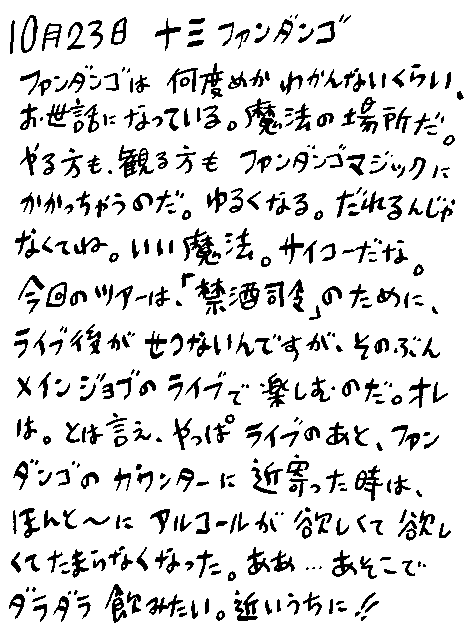 10月23日 十三 ファンダンゴ
ファンダンゴは 何度めか わかんないくらい、
お世話になっている。魔法の場所だ。
やる方も、観る方も ファンダンゴマジックに
かかっちゃうのだ。ゆるくなる。だれるんじゃ
なくてね。いい魔法。サイコーだな。
今回のツアーは、「禁酒司令」のために、
ライブ後が せつないんですが、そのぶん
メインジョブのライブで 楽しむのだ。オレ
は。とは言え、やっぱ ライブのあと、ファン
ダンゴの カウンターに 近寄った時は、
ほんと〜に アルコールが 欲しくて 欲し
くてたまらなくなった。ああ…あそこで
ダラダラ 飲みたい。近いうちに!!